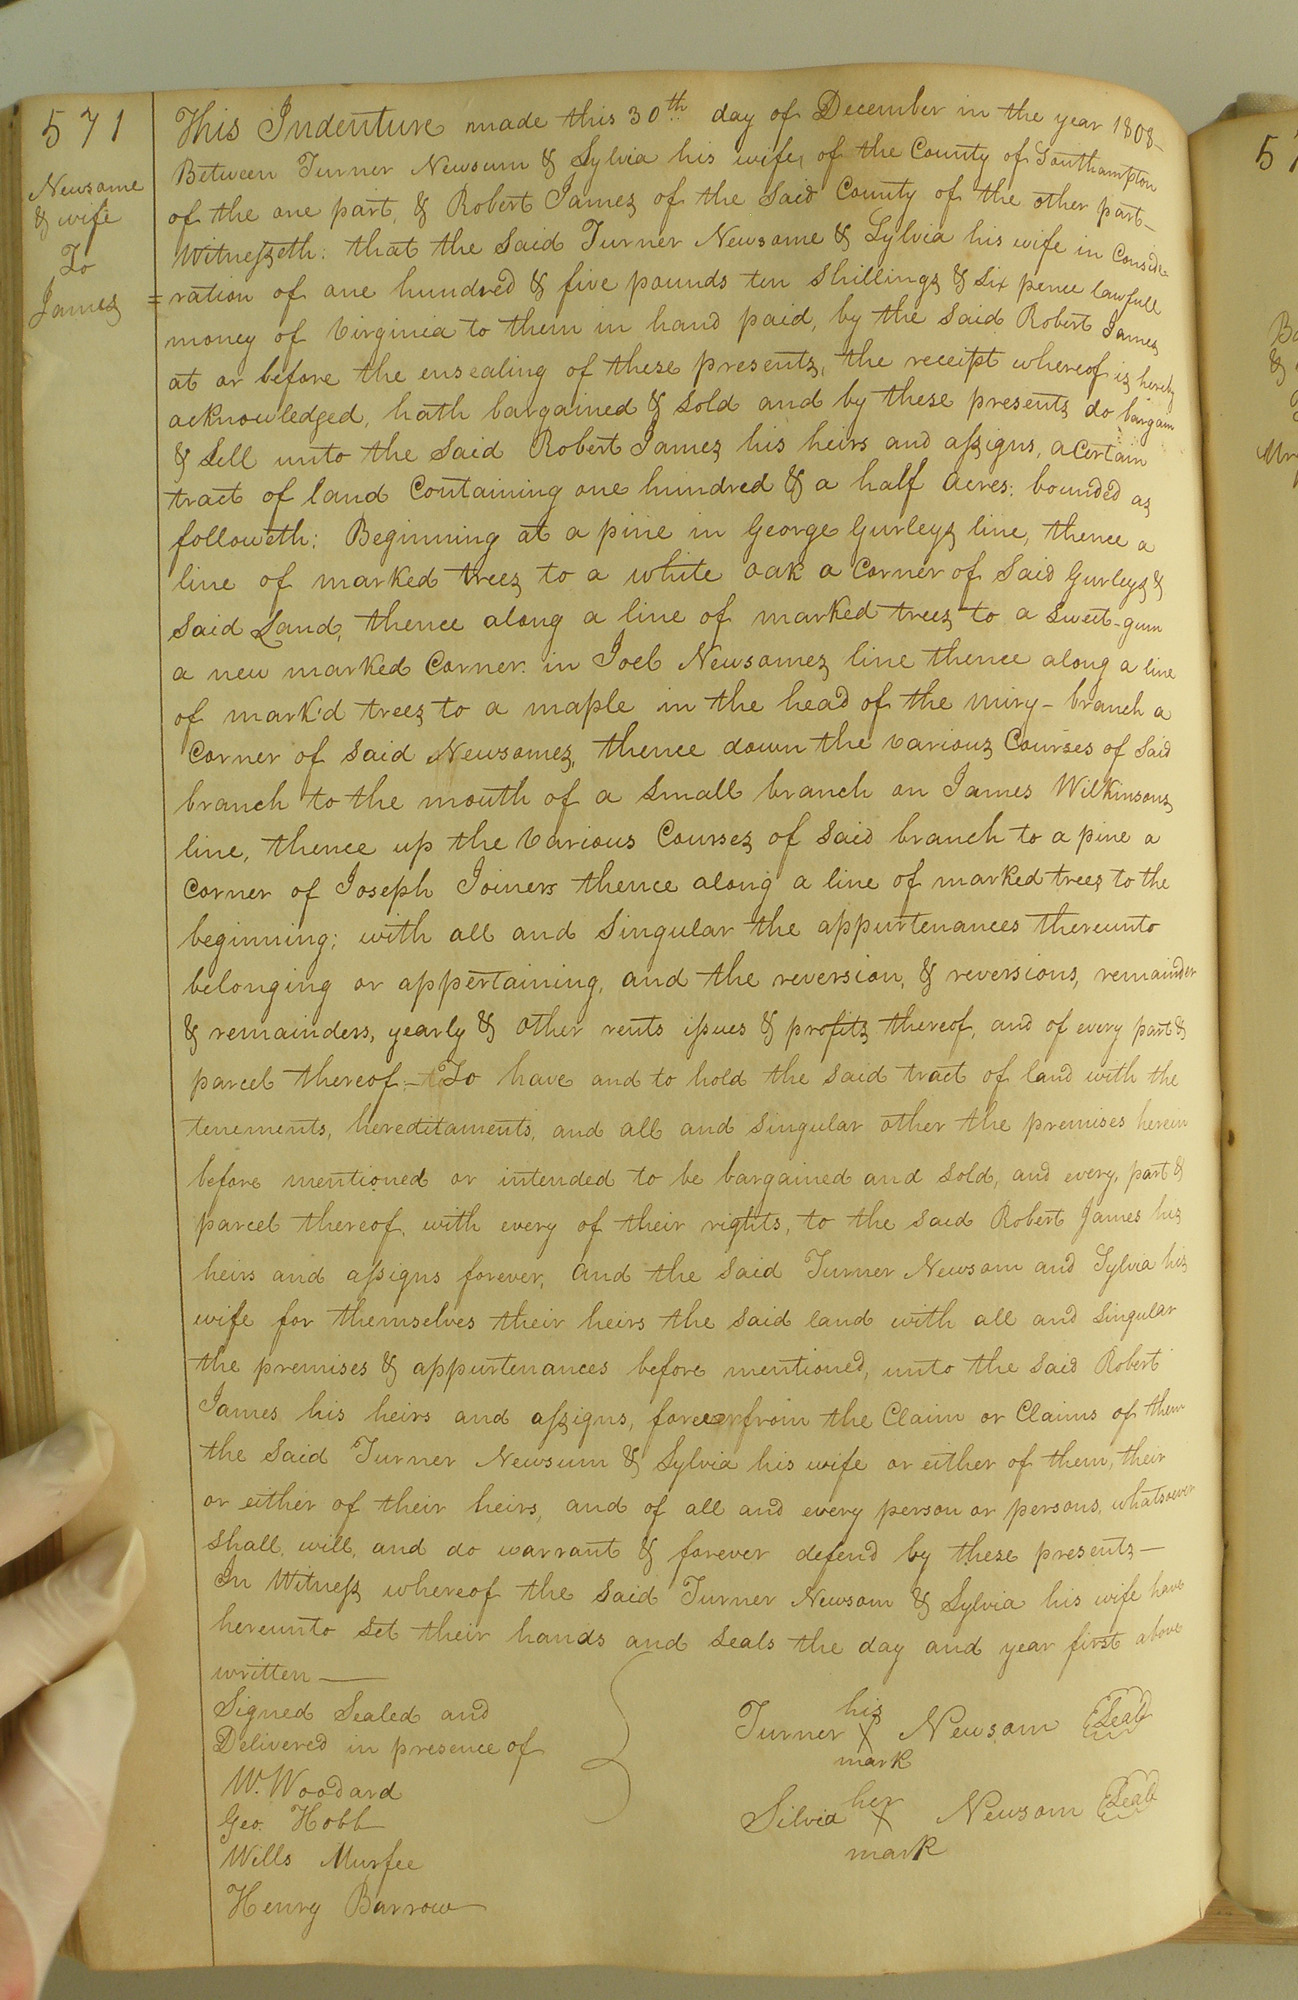 571
Newsome
& wife
To
James
This Indenture made this 30th day of December in the year 1808–
Between Turner Newsum & Sylvia his wife, of the County of Southampton
of the one part, & Robert James of the said County of the other part–
Witnesseth: that the said Turner Newsome & Sylvia his wife in Conside
=ration of one hundred & five pounds ten shillings & six pence lawfull
money of Virginia to them in hand paid, by the said Robert James
at or before the ensealing of these presents, the receipt whereof is hereby
acknowledged, hath bargained & sold and by these presents do bargain
& sell unto the said Robert James his heirs and assigns, a Certain
tract of land Containing one hundred & a half acres: bounded as
followeth: Beginning at a pine in George Gurleys line, thence a
line of marked trees to a white oak a Corner of said Gurleys &
said Land, thence along a line of marked trees to a sweet-gum
a new marked Corner in Joel Newsomes line thence along a line
of mark'd trees to a maple in the head of the miry-branch a
Corner of said Newsomes, thence down the various Courses of said
branch to the mouth of a small branch on James Wilkinsons
line, thence up the various Courses of said branch to a pine a
Corner of Joseph Joiners thence along a line of marked trees to the
beginning; with all and singular the appurtenances thereunto
belonging or appertaining, and the reversion, & reversions, remainder
& remainders, yearly & other rents issues & profits thereof, and of every part &
parcel thereof:– To have and to hold the said tract of land with the
tenements, hereditaments, and all and singular other the premises herein
before mentioned or intended to be bargained and sold, and every, part &
parcel thereof, with every of their rights, to the said Robert James his
heirs and assigns forever, and the said Turner Newsom and Sylvia his
wife for themselves their heirs the said land with all and singular
the premises & appurtenances before mentioned, unto the said Robert
James his heirs and assigns, forever from the Claim or Claims of them
the said Turner Newsum & Sylvia his wife or either of them, their
or either of their heirs, and of all and every person or persons, whatsoever
shall, will, and do warrant & forever defend by these presents–
In Witness whereof the said Turner Newsom & Sylvia his wife have
hereunto set their hands and seals the day and year first above
written—
Signed Sealed and
Delivered in presence of
W. Woodard
Geo. Hobb
Wills Murfee
Henry Barrow
his
Turner X Newsom Seal
mark
her
Silvia X Newsom Seal
mark